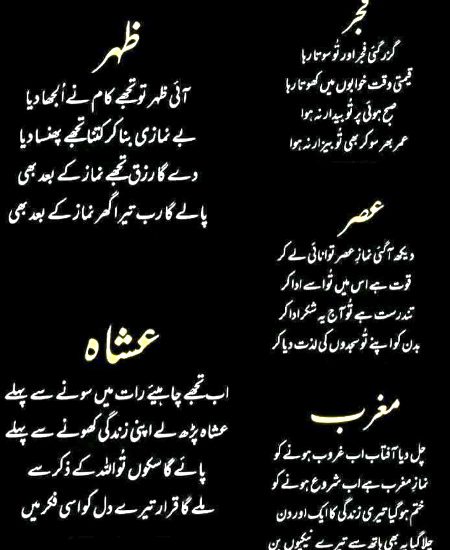 فجر
گزر گئی فجر اور تُو سوتا رہا
قیمتی وقت خوابوں میں کھوتا رہا
صبح ہوئی پر تُو بیدار نہ ہوا
عمر بھر سو کر بھی تُو بیزار نہ ہوا
ظہر
آئی ظہر تو تجھے کام نے اُلجھا دیا
بے نمازی بنا کر کتنا تجھے پھنسا دیا
دے گا رزق تجھے نماز کے بعد بھی
پالے گا رب تیرا گھر نماز کے بعد بھی
عصر
دیکھ آگئی نمازِ عصر توانائی لے کر
قوت ہے اس میں تُو اسے ادا کر
تندرست ہے تُو آج یہ شکر ادا کر
بدن کو اپنے تُو سجدوں کی لذت دیا کر
مغرب
چل دیا آفتاب اب غروب ہونے کو
نمازِ مغرب ہے اب شروع ہونے کو
ختم ہو گیا تیری زندگی کا ایک اور دن
چلا گیا یہ بھی ہاتھ سے تیرے نیکیوں بن
عشاہ
اب تجھے چاہیئے رات میں سونے سے پہلے
عشاہ پڑھ لے اپنی زندگی کھونے سے پہلے
پائے گا سکوں تُو اللہ کے ذکر سے
ملے گا قرار تیرے دل کو اسی فکر میں